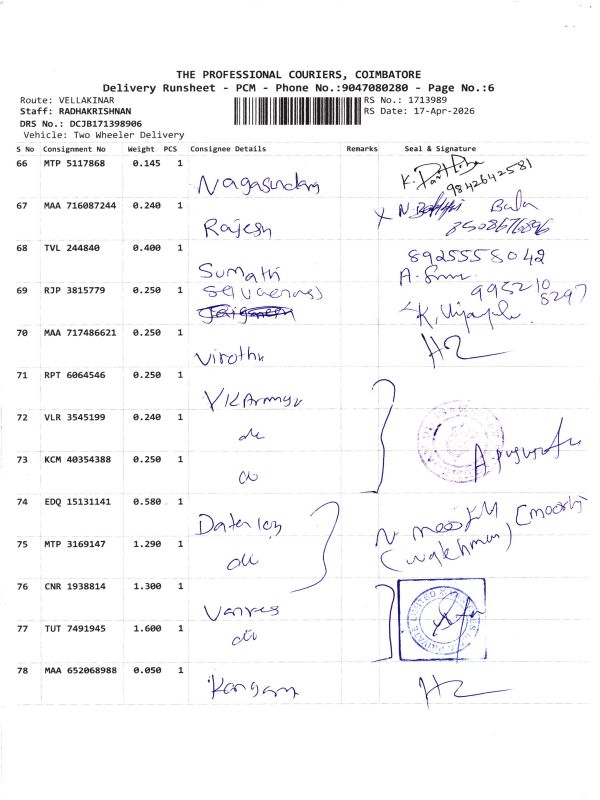 THE PROFESSIONAL COURIERS, COIMBATORE
Delivery Runsheet - PCM - Phone No.:9047080280 - Page No.:6
Route: VELLAKINAR
Staff: RADHAKRISHNAN
DRS No.: DCJB171398906
Vehicle: Two Wheeler Delivery
RS No.: 1713989
RS Date: 17-Apr-2026
S No Consignment No Weight PCS Consignee Details Remarks Seal & Signature
66 MTP 5117868 0.145 1
9842642581
67 MAA 716087244 0.240 1 Rajesh Bala
68 TVL 244840 0.400 1 Sumathi 8925558042
69 RJP 3815779 0.250 1 995210 8297
70 MAA 717486621 0.250 1 Virothu
71 RPT 6064546 0.250 1
72 VLR 3545199 0.240 1 do
73 KCM 40354388 0.250 1 do
74 EDQ 15131141 0.580 1
75 MTP 3169147 1.290 1 do
76 CNR 1938814 1.300 1
77 TUT 7491945 1.600 1 do
78 MAA 652068988 0.050 1